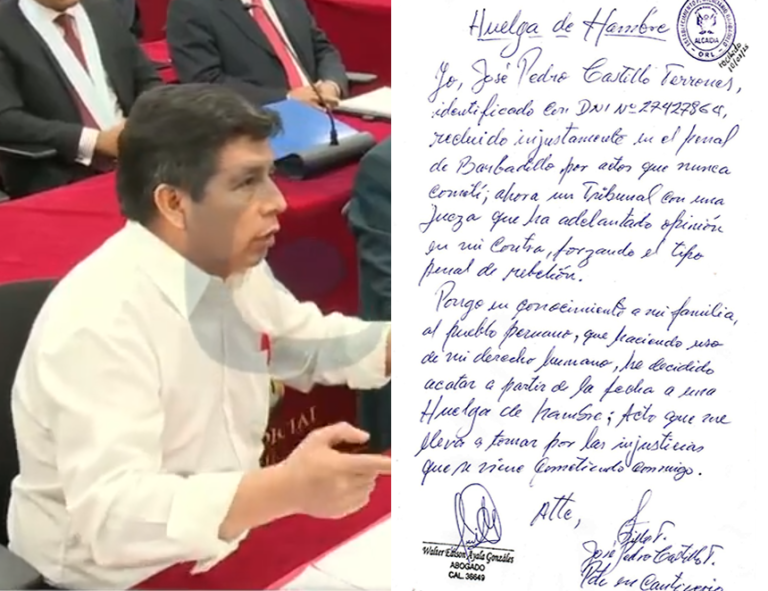 DICIAL
Huelga de Hambre
ALCAIDIA
ORL
Yo, José Pedro Castillo Terrones,
identificado con DNI Nº 27427864,
recluido injustamente en el penal
de Barbadillo por actos que nunca
cometí; ahora un Tribunal con una
Jueza que ha adelantado opinión
en mi contra, forzando el tipo
penal de rebelión.
Pongo en conocimiento a mi familia,
al pueblo peruano, que haciendo uso
de mi derecho humano, he decidido
acatar a partir de la fecha a una
Huelga de hambre; Acto que me
lleva a tomar por las injusticias
que se viene cometiendo conmigo.
Atte,
Walter Edison Ayala Gonzáles
ABOGADO
CAL. 36649
José Pedro Castillo T.
Pdte en Cautiverio